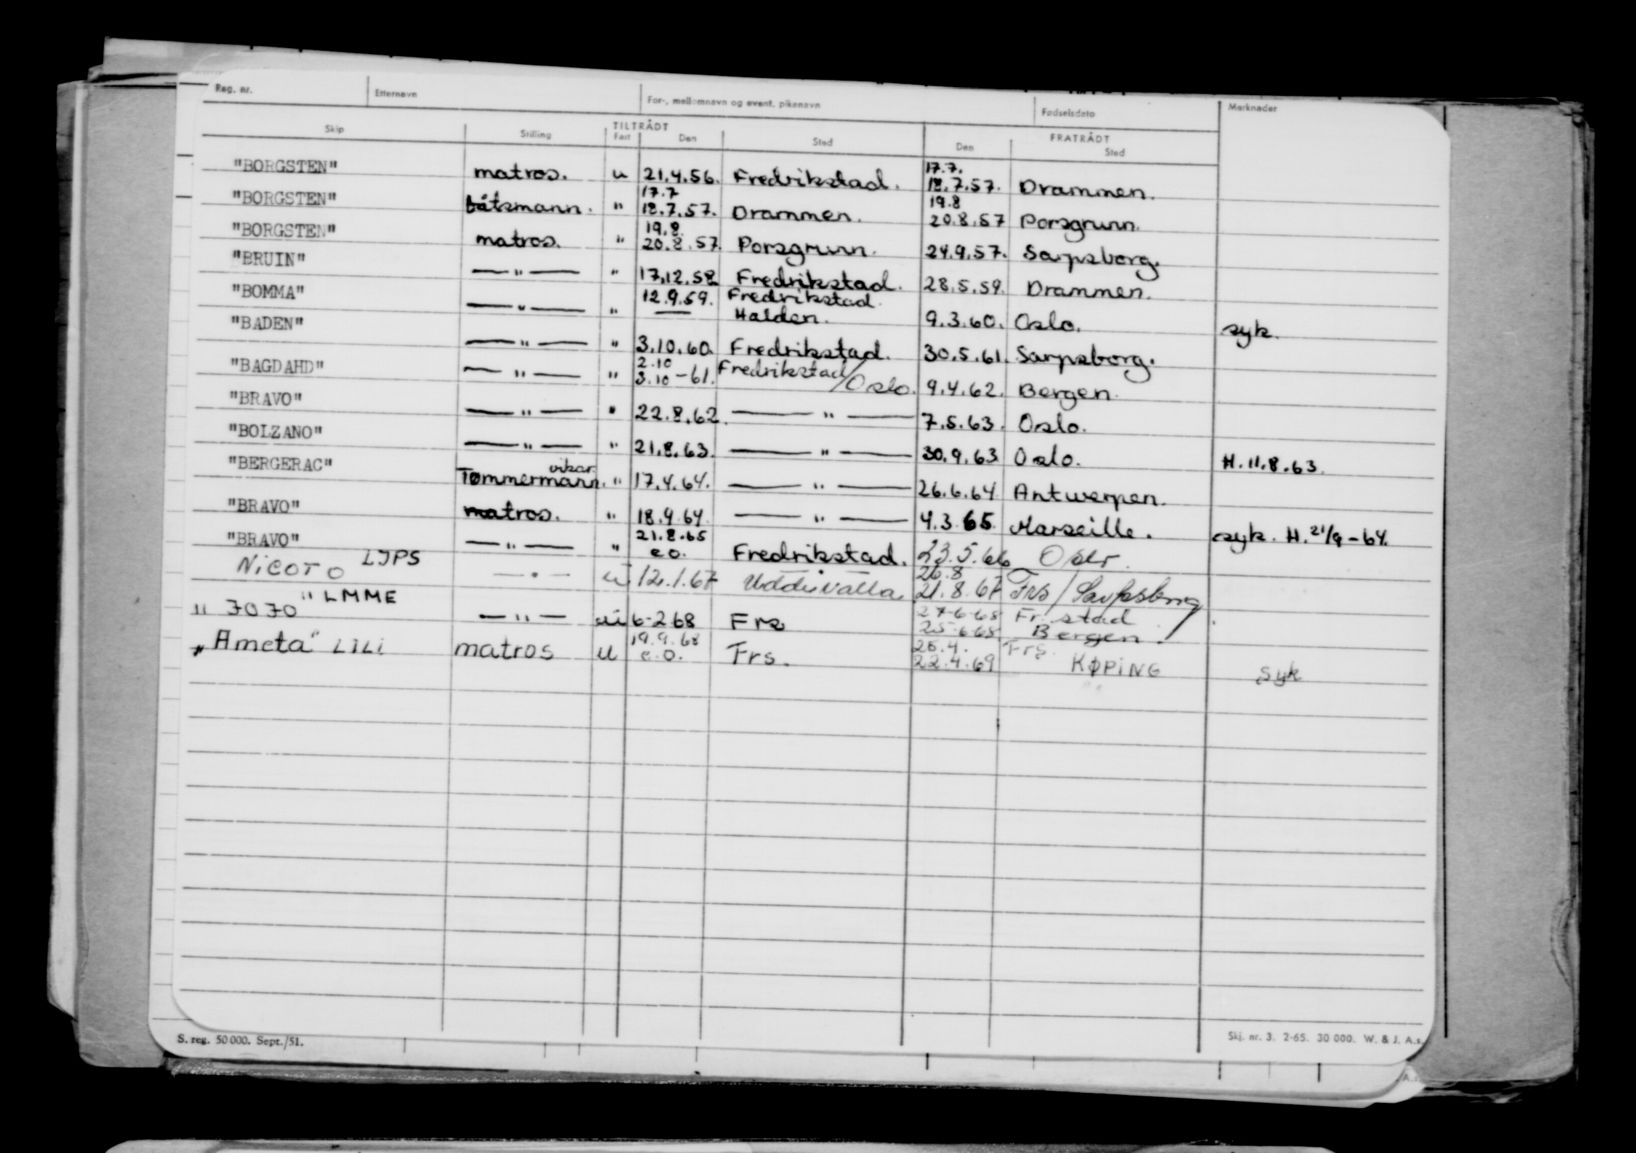 Reg. nr. Etternavn For-, mellomnavn og event. pikenavn Fødselsdato Merknader
TILTRÅDT FRATRÅDT
Skip Stilling Fart Den Sted Den Sted
"BORGSTEN" matros. u 21.4.56. Fredrikstad. 17.7. 18.7.57. Drammen.
"BORGSTEN" båtsmann. " 17.7 18.7.57. Drammen. 19.8 20.8.57 Porsgrunn.
"BORGSTEN" matros. " 19.8. 20.8.57. Porsgrunn. 24.9.57. Sarpsborg.
"BRUIN" — " — " 17.12.58 Fredrikstad. 28.5.59. Drammen.
"BOMMA" — " — " 12.9.59. Fredrikstad. Halden. 9.3.60. Oslo. syk.
"BADEN" — " — " 3.10.60. Fredrikstad. 30.5.61. Sarpsborg.
"BAGDAHD" — " — " 2.10 3.10-61. Fredrikstad/Oslo. 9.4.62. Bergen.
"BRAVO" — " — " 22.8.62. — " — 7.5.63. Oslo.
"BOLZANO" — " — " 21.8.63. — " — 30.9.63 Oslo. H.11.8.63.
"BERGERAC" Tømmermann. vikar " 17.4.64. — " — 26.6.64 Antwerpen.
"BRAVO" matros. " 18.9.64. — " — 4.3.65. Marseille. syk. H. 21/9-64.
"BRAVO" — " — " 21.8.65 e.o. Fredrikstad. 23.5.66 Oslo.
NiCOTO LJPS — " — u 12.1.67 Uddevalla 20.8 21.8.67 Frs/Sarpsborg
" 7070 " LMME — " — u 6-2 68 Frs 27-6-68 Fr.stad 25-6-68 Bergen.
"Ameta" LILI matros u 19.9.68 e.o. Frs. 26.4. Frs. 22.4.69 KØPiNG syk
S. reg. 50 000. Sept./51. Skj. nr. 3. 2-65. 30 000. W. & J. A.s.
A.s.